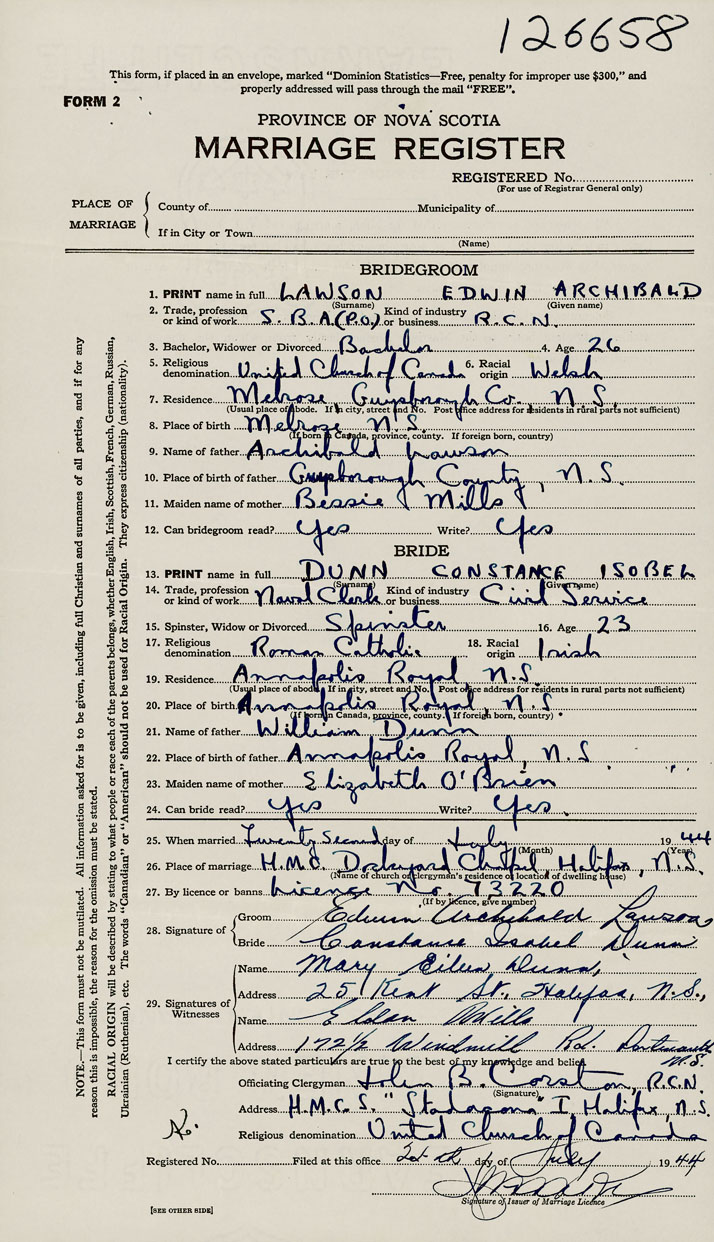 126658
This form, if placed in an envelope, marked "Dominion Statistics—Free, penalty for improper use $300," and
properly addressed will pass through the mail "FREE".
FORM 2
PROVINCE OF NOVA SCOTIA
MARRIAGE REGISTER
REGISTERED No.
(For use of Registrar General only)
PLACE OF MARRIAGE
County of Municipality of
If in City or Town
(Name)
BRIDEGROOM
1. PRINT name in full LAWSON EDWIN ARCHIBALD
(Surname) (Given name)
2. Trade, profession or kind of work S.B.A.(P.O.) Kind of industry or business R.C.N.
3. Bachelor, Widower or Divorced Bachelor 4. Age 26
5. Religious denomination United Church of Canada 6. Racial origin Welsh
7. Residence Melrose, Guysborough Co., N.S.
(Usual place of abode. If in city, street and No. Post office address for residents in rural parts not sufficient)
8. Place of birth Melrose N.S.
(If born in Canada, province, county. If foreign born, country)
9. Name of father Archibald Lawson
10. Place of birth of father Guysborough County, N.S.
11. Maiden name of mother Bessie Mills
12. Can bridegroom read? Yes Write? Yes
BRIDE
13. PRINT name in full DUNN CONSTANCE ISOBEL
(Surname) (Given name)
14. Trade, profession or kind of work Naval Clerk Kind of industry or business Civil Service
15. Spinster, Widow or Divorced Spinster 16. Age 23
17. Religious denomination Roman Catholic 18. Racial origin Irish
19. Residence Annapolis Royal, N.S.
(Usual place of abode. If in city, street and No. Post office address for residents in rural parts not sufficient)
20. Place of birth Annapolis Royal, N.S
(If born in Canada, province, county. If foreign born, country)
21. Name of father William Dunn
22. Place of birth of father Annapolis Royal, N.S
23. Maiden name of mother Elizabeth O'Brien
24. Can bride read? Yes Write? Yes.
25. When married Twenty Second day of July 1944
(Month) (Year)
26. Place of marriage H.M.C. Dockyard Chapel Halifax, N.S.
(Name of church of clergyman's residence or location of dwelling house)
27. By licence or banns License No. 73220
(If by licence, give number)
28. Signature of
Groom Edwin Archibald Lawson
Bride Constance Isabel Dunn
29. Signatures of Witnesses
Name Mary Eileen Dunn,
Address 25 Kent St., Halifax, N.S.,
Name Eldon Mills
Address 172½ Windmill Rd. Dartmouth
N.S.
I certify the above stated particulars are true to the best of my knowledge and belief.
Officiating Clergyman John B. Corston, R.C.N.
(Signature)
Address H.M.C.S. "Stadacona I Halifax, N.S.
Religious denomination United Church of Canada
Registered No. Filed at this office day of July 1944
Signature of Issuer of Marriage Licence
[SEE OTHER SIDE]
NOTE.—This form must not be mutilated. All information asked for is to be given, including full Christian and surnames of all parties, and if for any
reason this is impossible, the reason for the omission must be stated.
RACIAL ORIGIN will be described by stating to what people or race each of the parents belongs, whether English, Irish, Scottish, French, German, Russian,
Ukrainian (Ruthenian), etc. The words "Canadian" or "American" should not be used for Racial Origin. They express citizenship (nationality).